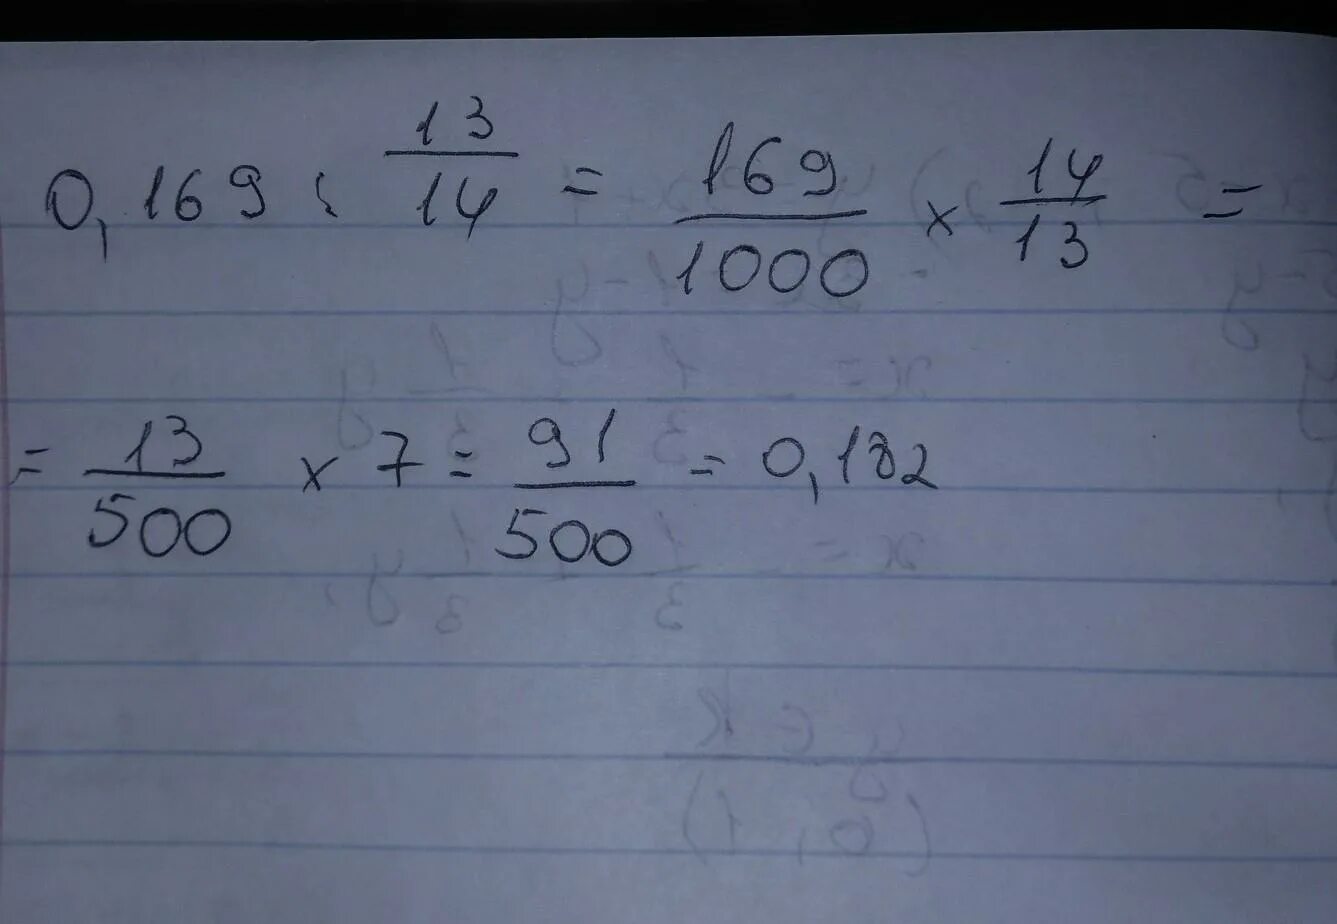 0,169 : 13/14 = 169/1000 × 14/13 =
= 13/500 × 7 = 91/500 = 0,182